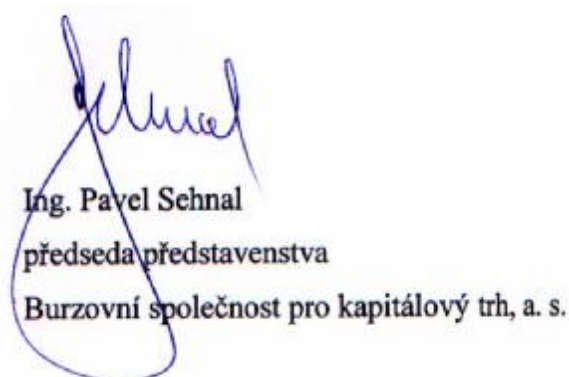 Sehnal
Ing. Pavel Sehnal
předseda představenstva
Burzovní společnost pro kapitálový trh, a. s.